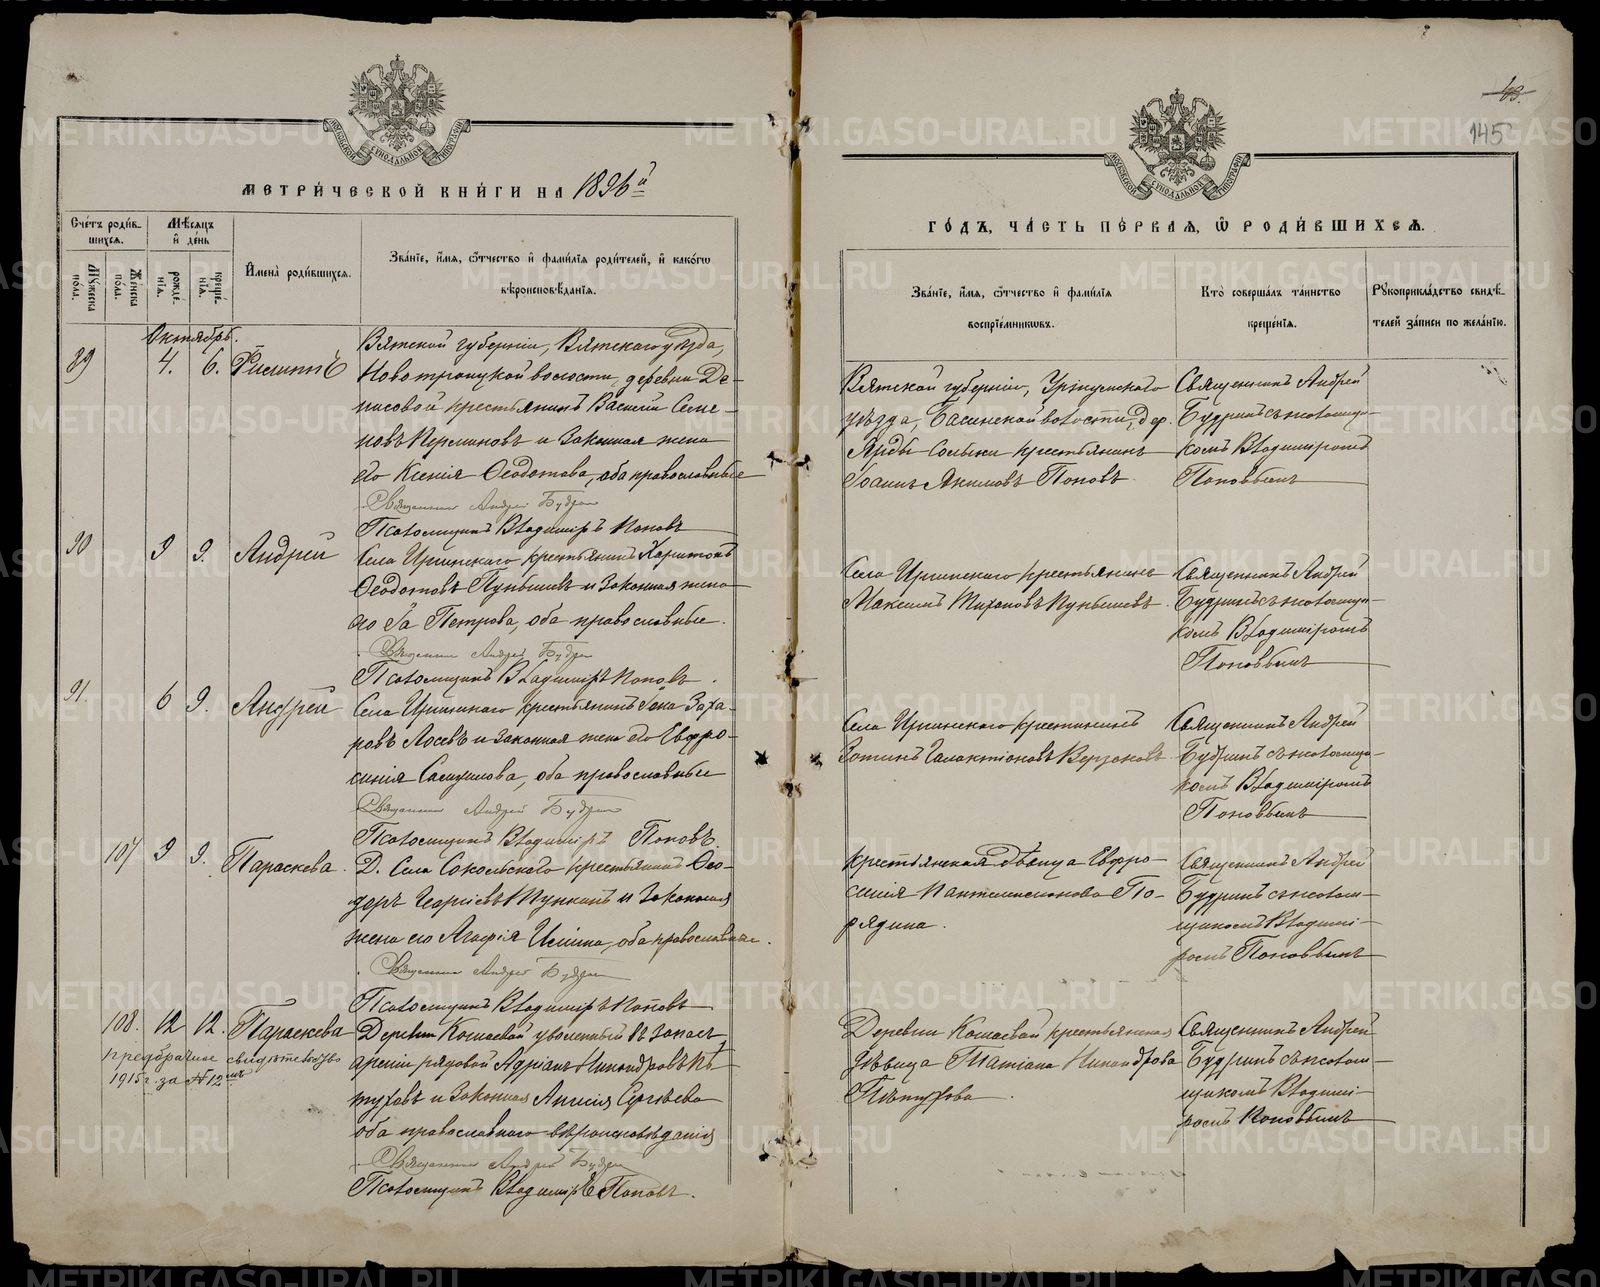 МЕТРИ́ЧЕСКОЙ КНИ́ГИ НА 1896й
Сче́тъ роди́в-
шихся.
Мѣсяцъ
и де́нь
Му́жеска
пола.
Же́нска
пола.
рожде-
нія.
креще-
нія.
Имена̀ роди́вшихся.
Зва́ніе, и́мя, ѻ҆́тчество и҆ фами́лія роди́телей, и҆ како́гѡ
вѣроисповѣ́данія.
Октябрь.
89 4. 6. Филиппъ
Вятской губерніи, Вятскаго уѣзда,
Новотроицкой волости, деревни Де-
нисовой крестьянинъ Василій Семе-
новъ и законная жена
его Ксенія Ѳеодотова, оба православные
Священникъ Андрей Будрин
Псаломщикъ Владиміръ Поповъ
90 9 9. Андрей
Села Иргинскаго крестьянинъ Харитонъ
Ѳеодотовъ Пунбышевъ и законная жена
его Іа Петрова, оба православные.
Священникъ Андрей Будрин
Псаломщикъ Владиміръ Поповъ.
91. 6 9. Андрей
Села Иргинскаго крестьянинъ Іона Заха-
ровъ Лосевъ и законная жена его Евфро-
синія Самуилова, оба православные
Священникъ Андрей Будрин
Псаломщикъ Владиміръ Поповъ.
107 9 9. Параскева.
Д. Села Сокольскаго крестьянинъ Ѳео-
доръ Георгіевъ и законная
жена его Агафія Ильина, оба православные.
Священникъ Андрей Будрин
Псаломщикъ Владиміръ Поповъ
108. 12 12. Параскева
свидѣтельство
1915 г. за № 12мъ
Деревни Кошаевой уволенный въ запасъ
арміи рядовой Адріанъ Никандровъ Пѣ-
туховъ и законная Анисія Сергѣева
оба православнаго вѣроисповѣданія
Священникъ Андрей Будрин
Псаломщикъ Владиміръ Поповъ.
43.
145
ГО́ДЪ, ЧА́СТЬ ПЕ́РВАЯ, Ѡ҆ РОДИ́ВШИХСЯ.
Зва́ніе, и́мя, ѻ҆́тчество и҆ фами́лія
воспріе́мниковъ.
Кто̀ соверша́лъ та́инство
креще́нія.
Рукоприкла́дство свидѣ́-
телей за́писи по жела́нію.
Вятской губерніи, Уржумскаго
уѣзда, волости, дер.
крестьянинъ
Іоаннъ Акимовъ Поповъ.
Священникъ Андрей
Будринъ съ псаломщи-
комъ Владиміромъ
Поповымъ
Села Иргинскаго крестьянинъ
Максимъ Тихановъ Пунбышевъ.
Священникъ Андрей
Будринъ съ псаломщи-
комъ Владиміромъ
Поповымъ
Села Иргинскаго крестьянинъ
Зотикъ Галактіоновъ Верзаковъ
Священникъ Андрей
Будринъ съ псаломщи-
комъ Владиміромъ
Поповымъ
крестьянская дѣвица Евфро-
синія Пантелеимонова По-
рядина.
Священникъ Андрей
Будринъ съ псалом-
щикомъ Владимі-
ромъ Поповымъ
Деревни Кошаевой крестьянская
дѣвица Татіана Никандрова
Пѣтухова.
Священникъ Андрей
Будринъ съ псалом-
щикомъ Владимі-
ромъ Поповымъ
METRIKI.GASO-URAL.RU